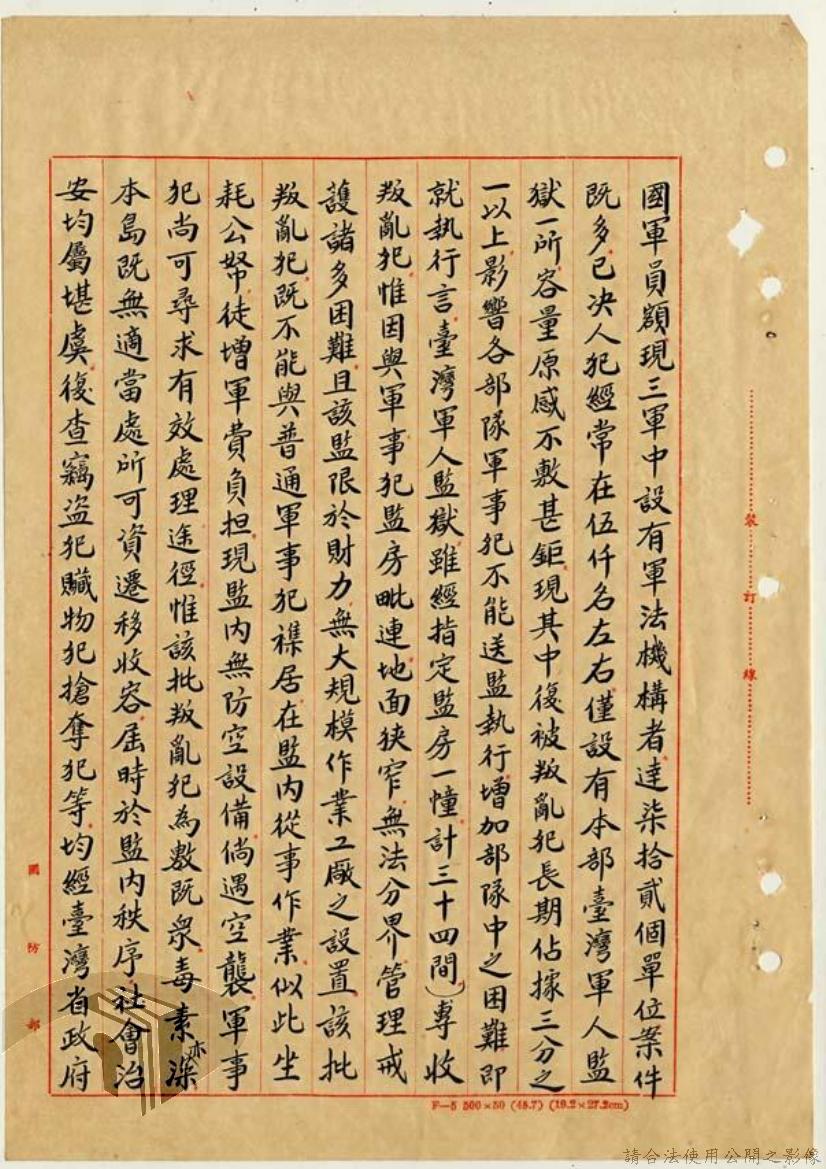 國軍員額現三軍中設有軍法機構者達柒拾貳個單位案件
既多已決人犯經常在伍仟名左右僅設有本部臺灣軍人監
獄一所容量原感不敷甚鉅現其中復被叛亂犯長期佔據三分之
一以上影響各部隊軍事犯不能送監執行增加部隊中之困難即
就執行言臺灣軍人監獄雖經指定監房一幢計三十四間）專收
叛亂犯惟因與軍事犯監房毗連地面狹窄無法分界管理戒
護諸多困難且該監限於財力無大規模作業工廠之設置該批
叛亂犯既不能與普通軍事犯襍居在監內從事作業似此坐
耗公帑徒增軍費負担現監內無防空設備倘遇空襲軍事
犯尚可尋求有效處理途徑惟該批叛亂犯為數既衆毒素亦深
本島既無適當處所可資遷移收容屆時於監內秩序社會治
安均屬堪虞復查竊盜犯贓物犯搶奪犯等均經臺灣省政府
裝訂線
國防部
F—5 500×50 (48.7) (19.2×27.2cm)
請合法使用公開之影像